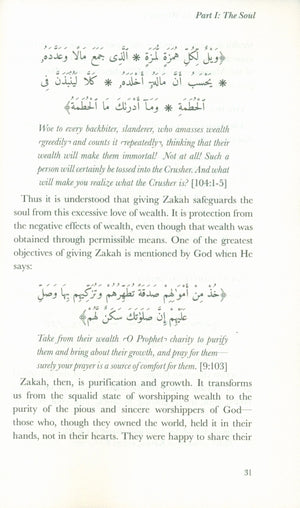 Part I: The Soul
﴿وَيْلٌ لِّكُلِّ هُمَزَةٍ لُّمَزَةٍ ✵ الَّذِى جَمَعَ مَالًا وَعَدَّدَهُۥ
✵ يَحْسَبُ أَنَّ مَالَهُۥٓ أَخْلَدَهُۥ ✵ كَلَّا لَيُنۢبَذَنَّ فِى
الْحُطَمَةِ ✵ وَمَآ أَدْرَىٰكَ مَا الْحُطَمَةُ﴾
Woe to every backbiter, slanderer, who amasses wealth
‹greedily› and counts it ‹repeatedly›, thinking that their
wealth will make them immortal! Not at all! Such a
person will certainly be tossed into the Crusher. And what
will make you realize what the Crusher is? [104:1-5]
Thus it is understood that giving Zakah safeguards the
soul from this excessive love of wealth. It is protection from
the negative effects of wealth, even though that wealth was
obtained through permissible means. One of the greatest
objectives of giving Zakah is mentioned by God when He
says:
﴿خُذْ مِنْ أَمْوَٰلِهِمْ صَدَقَةً تُطَهِّرُهُمْ وَتُزَكِّيهِم بِهَا وَصَلِّ
عَلَيْهِمْ إِنَّ صَلَوٰتَكَ سَكَنٌ لَّهُمْ﴾
Take from their wealth ‹O Prophet› charity to purify
them and bring about their growth, and pray for them—
surely your prayer is a source of comfort for them. [9:103]
Zakah, then, is purification and growth. It transforms
us from the squalid state of worshipping wealth to the
purity of the pious and sincere worshippers of God—
those who, though they owned the world, held it in their
hands, not in their hearts. They were happy to share their
31